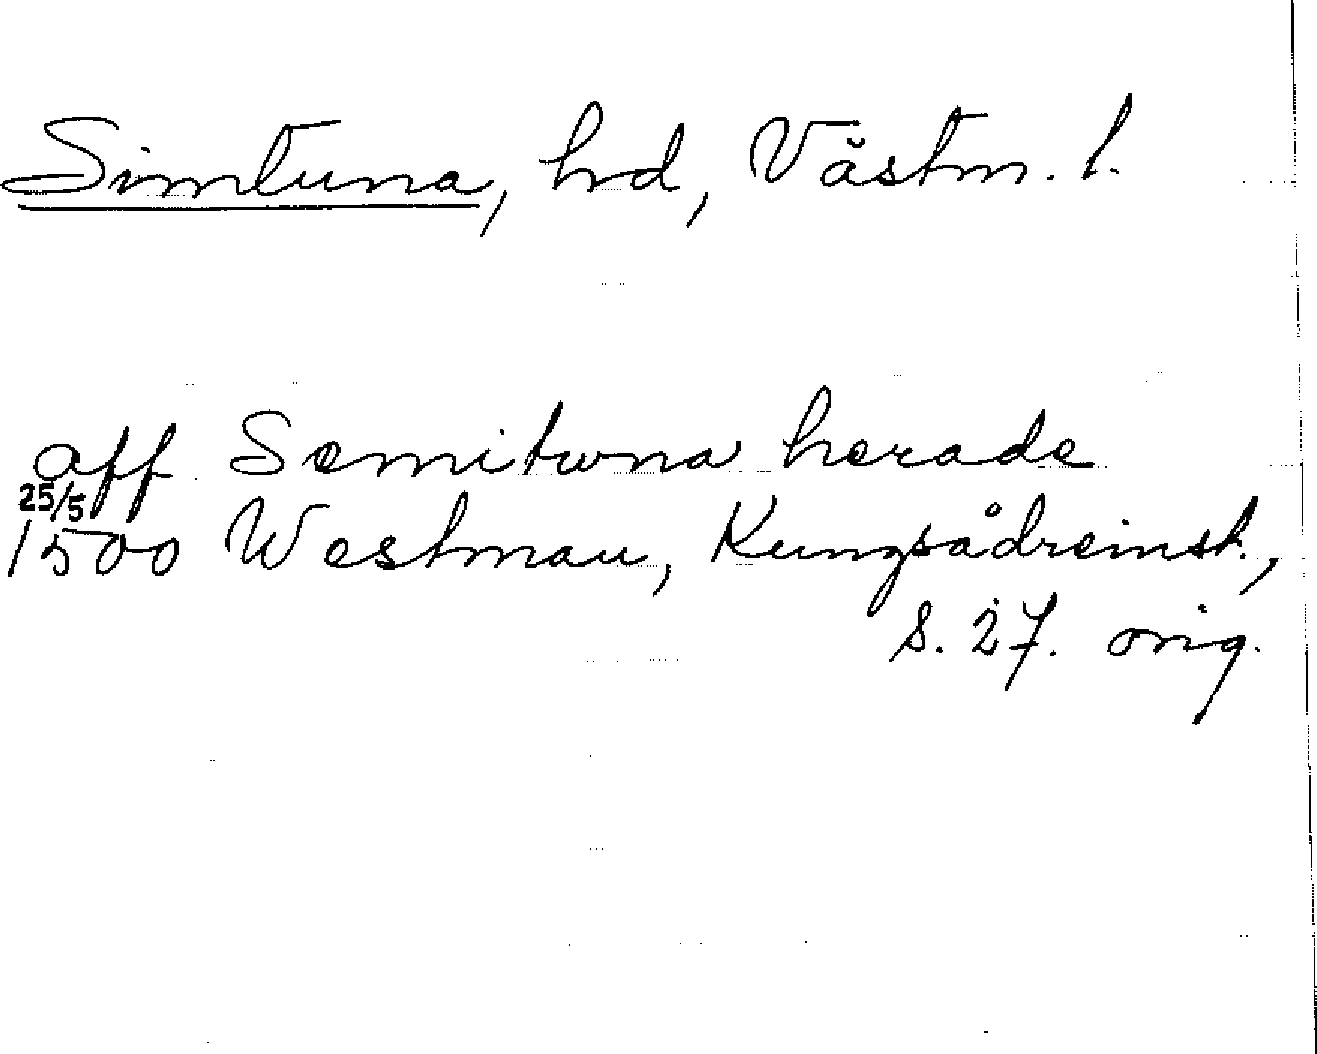 Simtuna, hrd, Västm. l.
aff Semitwna herade
25/5
1500 Westmau, Kungsådreinst.,
s. 27. orig.